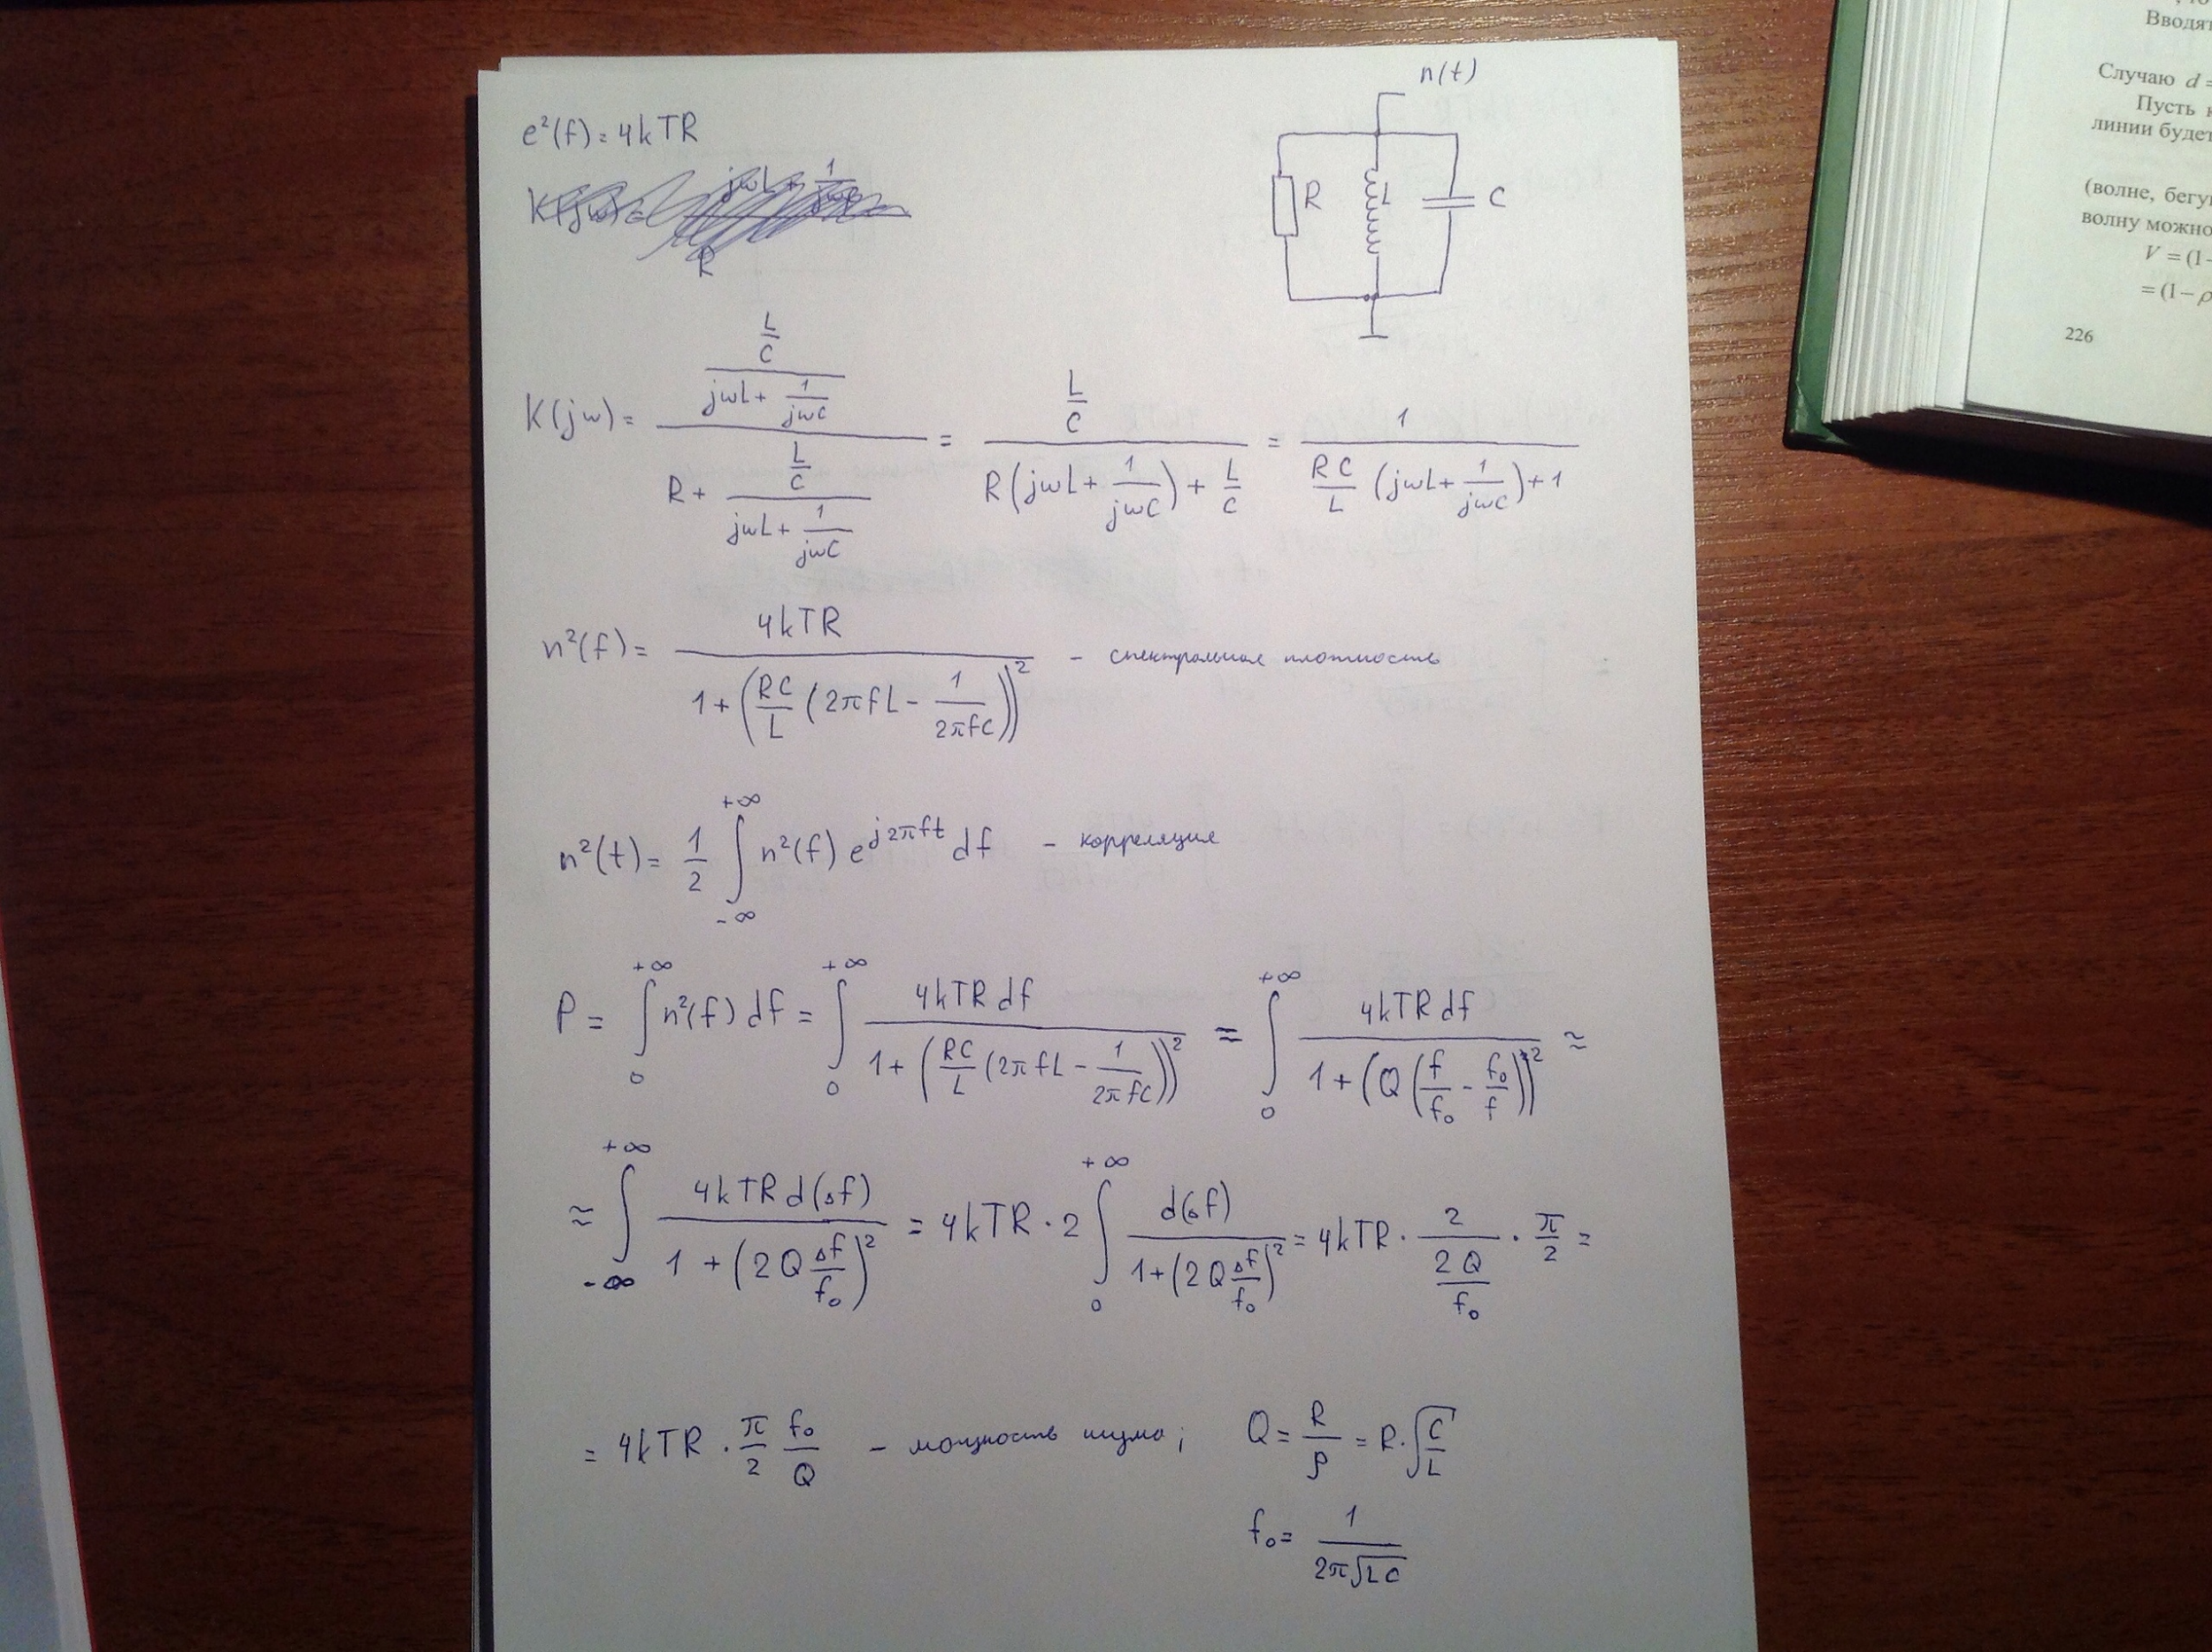 n(t)
e²(f) = 4kTR
R L C
K(jω) = \frac{\frac{L}{C}}{jωL + \frac{1}{jωC}} / (R + \frac{\frac{L}{C}}{jωL + \frac{1}{jωC}}) = \frac{\frac{L}{C}}{R(jωL + \frac{1}{jωC}) + \frac{L}{C}} = \frac{1}{\frac{RC}{L}(jωL + \frac{1}{jωC}) + 1}
n²(f) = \frac{4kTR}{1 + (\frac{RC}{L}(2πfL - \frac{1}{2πfC}))^2} - спектральная плотность
n²(t) = \frac{1}{2} ∫_{-∞}^{+∞} n²(f) e^{j2πft} df - корреляция
P = ∫_0^{+∞} n²(f) df = ∫_0^{+∞} \frac{4kTR df}{1 + (\frac{RC}{L}(2πfL - \frac{1}{2πfC}))^2} = ∫_0^{+∞} \frac{4kTR df}{1 + (Q(\frac{f}{f_0} - \frac{f_0}{f}))^2} ≈
≈ ∫_{-∞}^{+∞} \frac{4kTR d(Δf)}{1 + (2Q\frac{Δf}{f_0})^2} = 4kTR · 2 ∫_0^{+∞} \frac{d(Δf)}{1 + (2Q\frac{Δf}{f_0})^2} = 4kTR · \frac{2}{\frac{2Q}{f_0}} · \frac{π}{2} =
= 4kTR · \frac{π}{2} \frac{f_0}{Q} - мощность шума; Q = \frac{R}{ρ} = R · \sqrt{\frac{C}{L}}
f_0 = \frac{1}{2π\sqrt{LC}}
Вводят
Случаю d =
Пусть
линии будет
(волне, бегу
волну можно
V = (1 -
= (1 - ρ
226